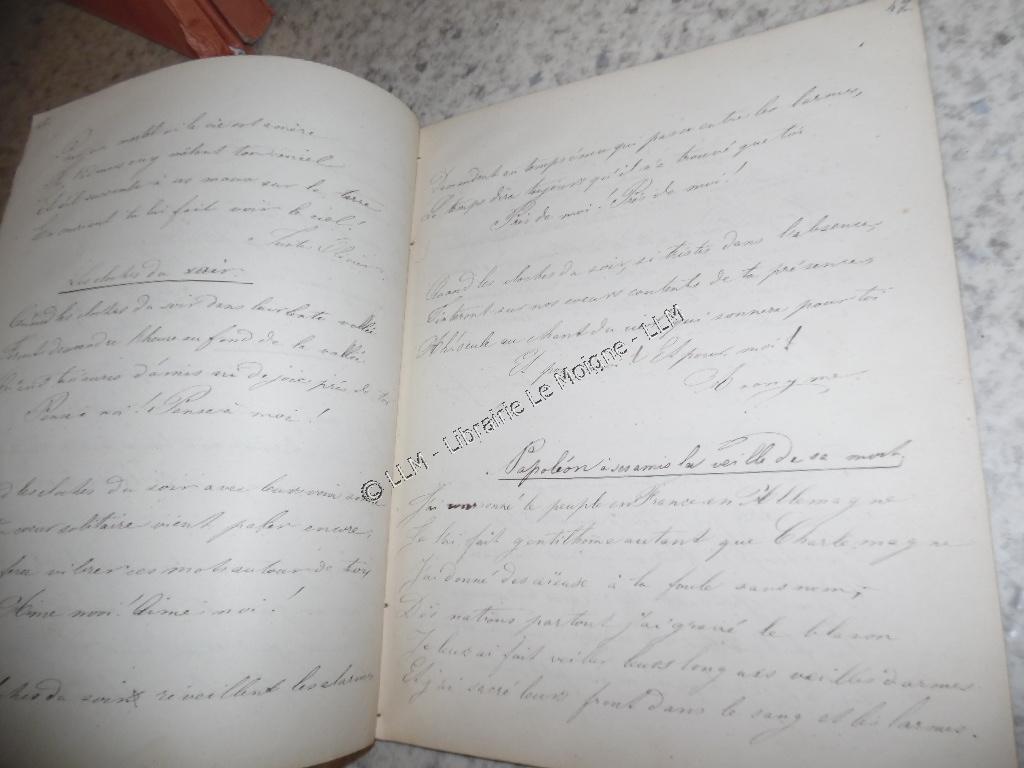 la vie est amère
ton miel
à nos maux sur la terre
lui fait voir le ciel!
Les cloches du soir.
Quand les cloches du soir dans leur lente volée
Feront descendre l'heure au fond de la vallée
d'amis ni de joie près de toi
Pense à moi! Pense à moi!
les cloches du soir avec leur voix
cœur solitaire vient parler encore,
fera vibrer ces mots autour de toi
Aime moi! Aime moi!
du soir réveillent les alarmes
42
Demandent au temps ému qui passe entre les larmes,
Le temps dira toujours qu'il n'a trouvé que toi
Près de moi! Près de moi!
Quand les cloches du soir, si tristes dans l'absence,
Vibreront sur nos cœurs contents de ta présence
chant du qui sonnera pour toi
Et Et pour moi!
Anonyme.
Napoléon à ses amis la veille de sa mort,
J'ai couronné le peuple en France en Allemagne
Je l'ai fait gentilhome autant que Charlemagne
J'ai donné des aïeux à la foule sans nom;
Des nations partout j'ai gravé le blason
Je leur ai fait veiller leurs longues veilles d'armes
Et j'ai sacré leurs front dans le sang et les larmes.
© LLM - Librairie Le Moigne - LLM